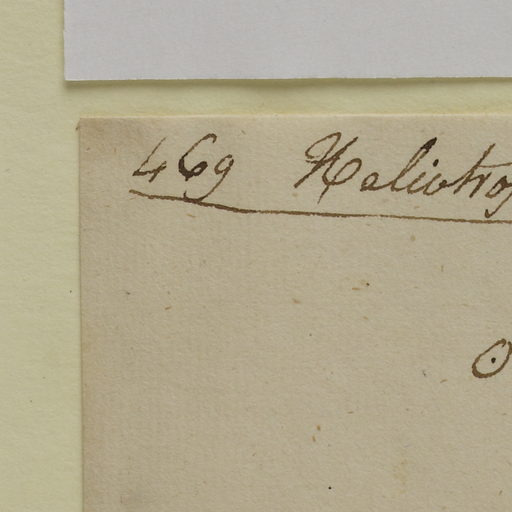 469 Heliotrop
O